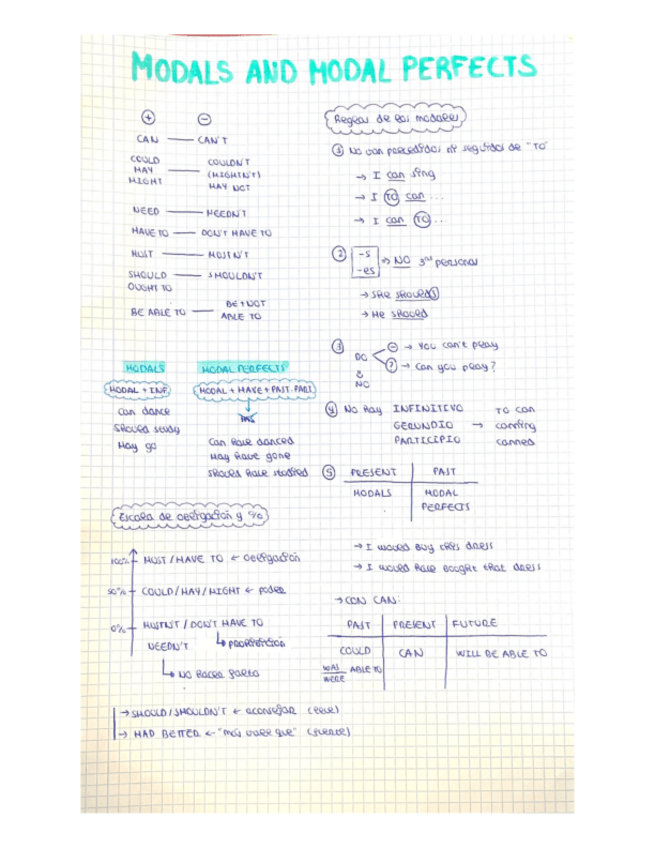 MODALS AND MODAL PERFECTS
+ -
CAN — CAN'T
COULD COULDN'T
MAY — (MIGHTN'T)
MIGHT MAY NOT
NEED — NEEDN'T
HAVE TO — DON'T HAVE TO
MUST — MUSTN'T
SHOULD — SHOULDN'T
OUGHT TO
BE ABLE TO — BE + NOT
ABLE TO
MODALS MODAL PERFECTS
MODAL + INF. MODAL + HAVE + PAST. PART.
Can dance
Should study
May go
Can have danced
May have gone
Should have studied
Escala de obligación y %
100% MUST / HAVE TO ← obligación
50% COULD / MAY / MIGHT ← poder
0% MUSTN'T / DON'T HAVE TO
NEEDN'T ↳ prohibición
↳ NO hacer falta
→ SHOULD / SHOULDN'T ← aconsejar (leve)
→ HAD BETTER ← "más vale que" (fuerte)
Reglas de los modales
① No van precedidos ni seguidos de "TO"
→ I can sing
→ I TO can ...
→ I can TO ...
② -s
-es ⇒ NO 3ª persona
→ She shoulds
→ He should
③ DO - → You can't play
? → Can you play?
NO
④ No hay INFINITIVO TO can
GERUNDIO → canning
PARTICIPIO canned
⑤ PRESENT PAST
MODALS MODAL
PERFECTS
→ I would buy this dress
→ I would have bought that dress
→ CON CAN:
PAST PRESENT FUTURE
COULD CAN WILL BE ABLE TO
WAS ABLE TO
WERE